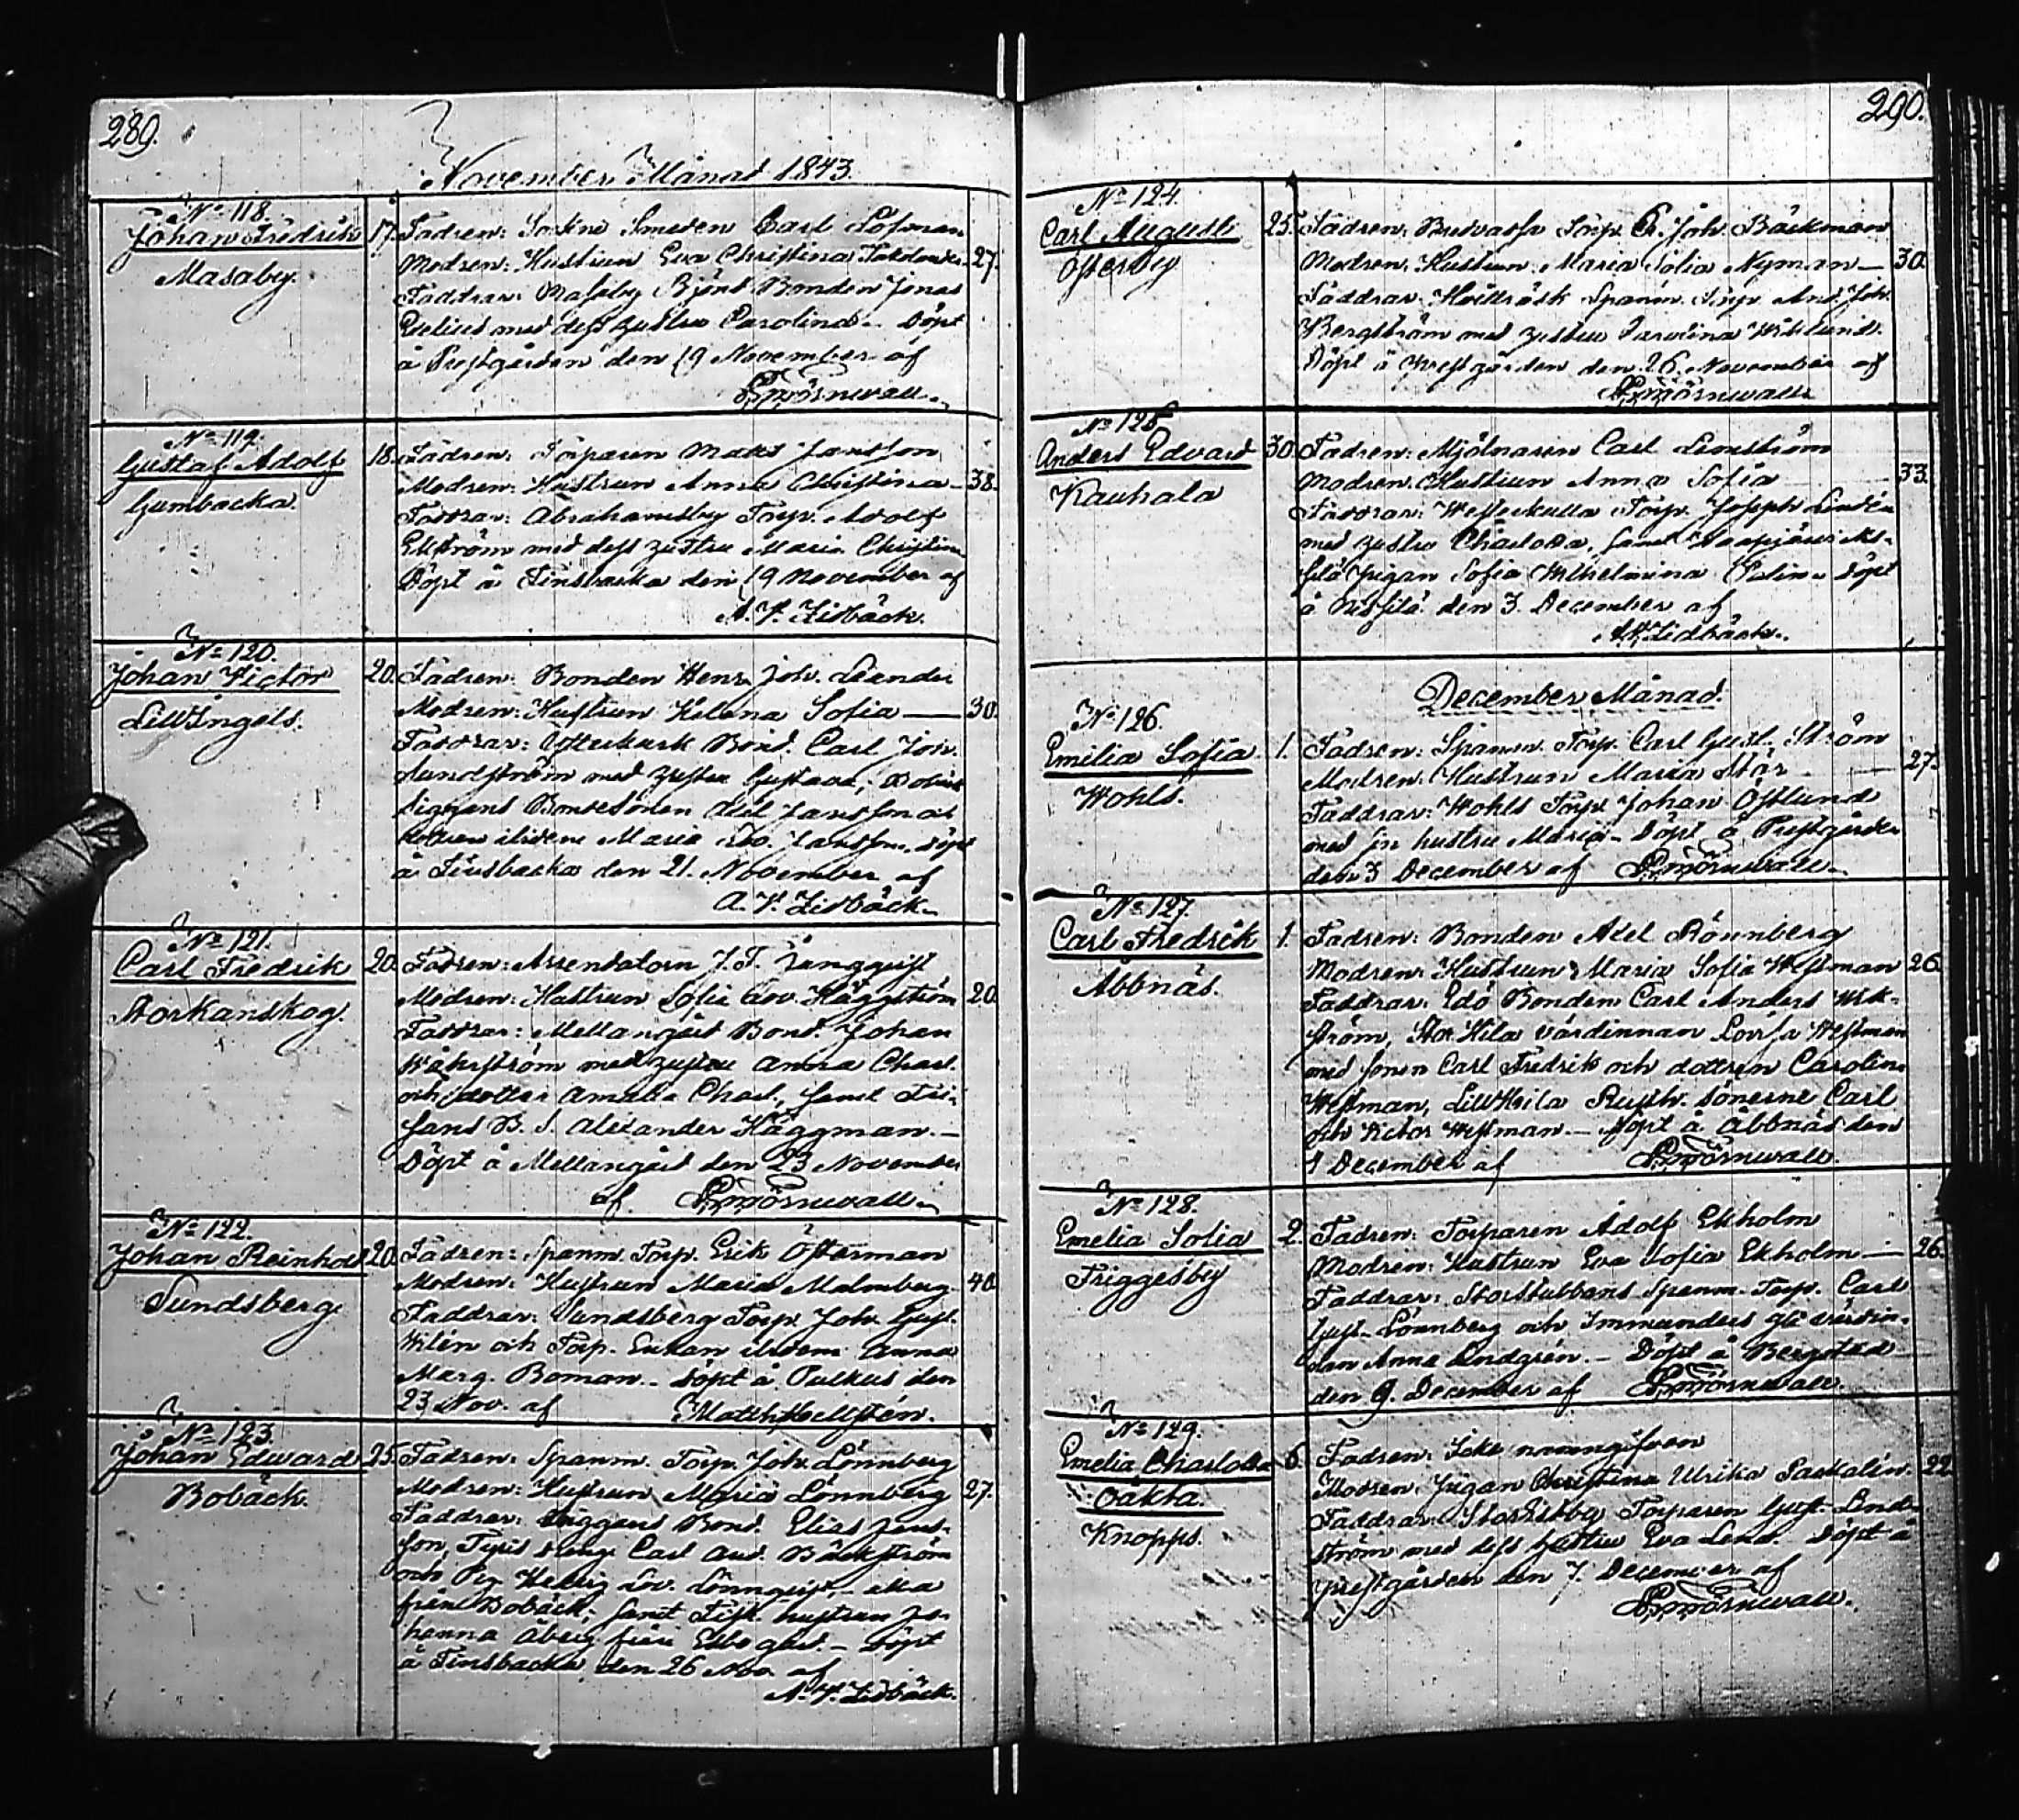 289.
November Månad 1843.
N° 118.
Johan Fredrik
Masaby.
17.
Fadren: Smeden Carl Löfman
Modren: Hustrun Eva Christina
27.
Faddrar: Masaby Björns Bonden Jonas
med dess hustru Carolina. Döpt
å Prestgården den 19 November af
N° 119.
Gustaf Adolf
Gumbacka.
18.
Fadren: Torparen Mats Jansson
Modren: Hustrun Anna Christina
38.
Faddrar: Abrahamsby Torp. Adolf
Ekström med dess hustru Maria Christina
Döpt å Finsbacka den 19 November af
A. V. Lidbäck.
N° 120.
Johan Victor
LillIngels.
20.
Fadren: Bonden Henr. Joh. Leander
Modren: Hustrun Helena Sofia
30.
Faddrar: Bond. Carl Joh.
Sundström med hustru Gustava,
Siggens Bondesonen Axel Jansson och
Maria Jansson. Döpt
å Finsbacka den 21. November af
A. V. Lidbäck.
N° 121.
Carl Fredrik
Storkanskog.
20.
Fadren: Arrendatorn J. F. Långqvist
Modren: Hustrun Sofia Lov. Häggström
20.
Faddrar: Mellangård Bond. Johan
med hustru Anna Charl.
och dotter Amalia Charl., samt
B. S. Alexander Häggman.
Döpt å Mellangård den 23 November
af
N° 122.
Johan Reinhold
Sundsberg
20.
Fadren: Spanm. Torp. Erik Österman
Modren: Hustrun Maria Malmberg
40.
Faddrar: Sundsberg Torp. Joh. Gust.
Wilén och Torp. Enkan ibidem Anna
Marg. Boman. Döpt å Pulkus den
23 Nov. af
N° 123.
Johan Edward
Bobäck.
25.
Fadren: Spanm. Torp. Joh. Lönnberg
Modren: Hustrun Maria Lönnberg
27.
Faddrar: Siggens Bond. Elias Jans-
son, dreng Carl And. Bäckström
och Pig. Hedvig Lov. Lönnqvist, alla
från Bobäck, samt hustrun Jo-
hanna Åberg från
Döpt
å Finsbacka den 26 Nov. af
A. V. Lidbäck.
290.
N° 124.
Carl August
Österby
25.
Fadren: Torp. Joh. Bäckman
Modren: Hustrun Maria Sofia Nyman
30.
Faddrar: Hvitträsk Spanm. Torp. And. Joh.
Bergström med hustru Carolina Wiklund.
Döpt å Prestgården den 26. November af
N° 125
Anders Edvard
Kauhala
30.
Fadren: Mjölnaren Carl Lemström
Modren: Hustrun Anna Sofia
33.
Faddrar: Westerkulla Torp. Joseph Lindén
med hustru Charlotta, samt
Pigan Sofia Wilhelmina Palin. Döpt
å den 3. December af
A. V. Lidbäck.
December Månad.
N° 126.
Emilia Sofia
Wohls.
1.
Fadren: Spanm. Torp. Carl Gust. Ström
Modren: Hustrun Maria
27.
Faddrar: Wohls Torp. Johan Östlund
med sin hustru Maria. Döpt å Prestgården
den 3 December af
N° 127.
Carl Fredrik
Åbbnäs.
1.
Fadren: Bonden Axel Rönnberg
Modren: Hustrun Maria Sofia Westman
26.
Faddrar: Edö Bonden Carl Anders Wik-
ström, Stor Hila värdinnan Lovisa Westman
med sonen Carl Fredrik och dottren Carolina
Westman, LillHila Rusth. Sönerne Carl
och Victor Westman. Döpt å Åbbnäs den
December af
N° 128.
Emelia Sofia
Friggesby
2.
Fadren: Torparen Adolf Ekholm
Modren: Hustrun Eva Sofia Ekholm
26.
Faddrar: Storstubbans Spanm. Torp. Carl
Gust. Lönnberg och värdin-
nan Anna Lindgrén. Döpt å Bergstad
den 9. December af
N° 129.
Emelia Charlotta
oäkta.
Knopps.
6.
Fadren: Icke namngifven
Modren: Pigan Christina Ulrika
22
Faddrar: Torparen Gust. Lind-
ström med dess hustru Eva Lena. Döpt å
Prestgården den 7. December af